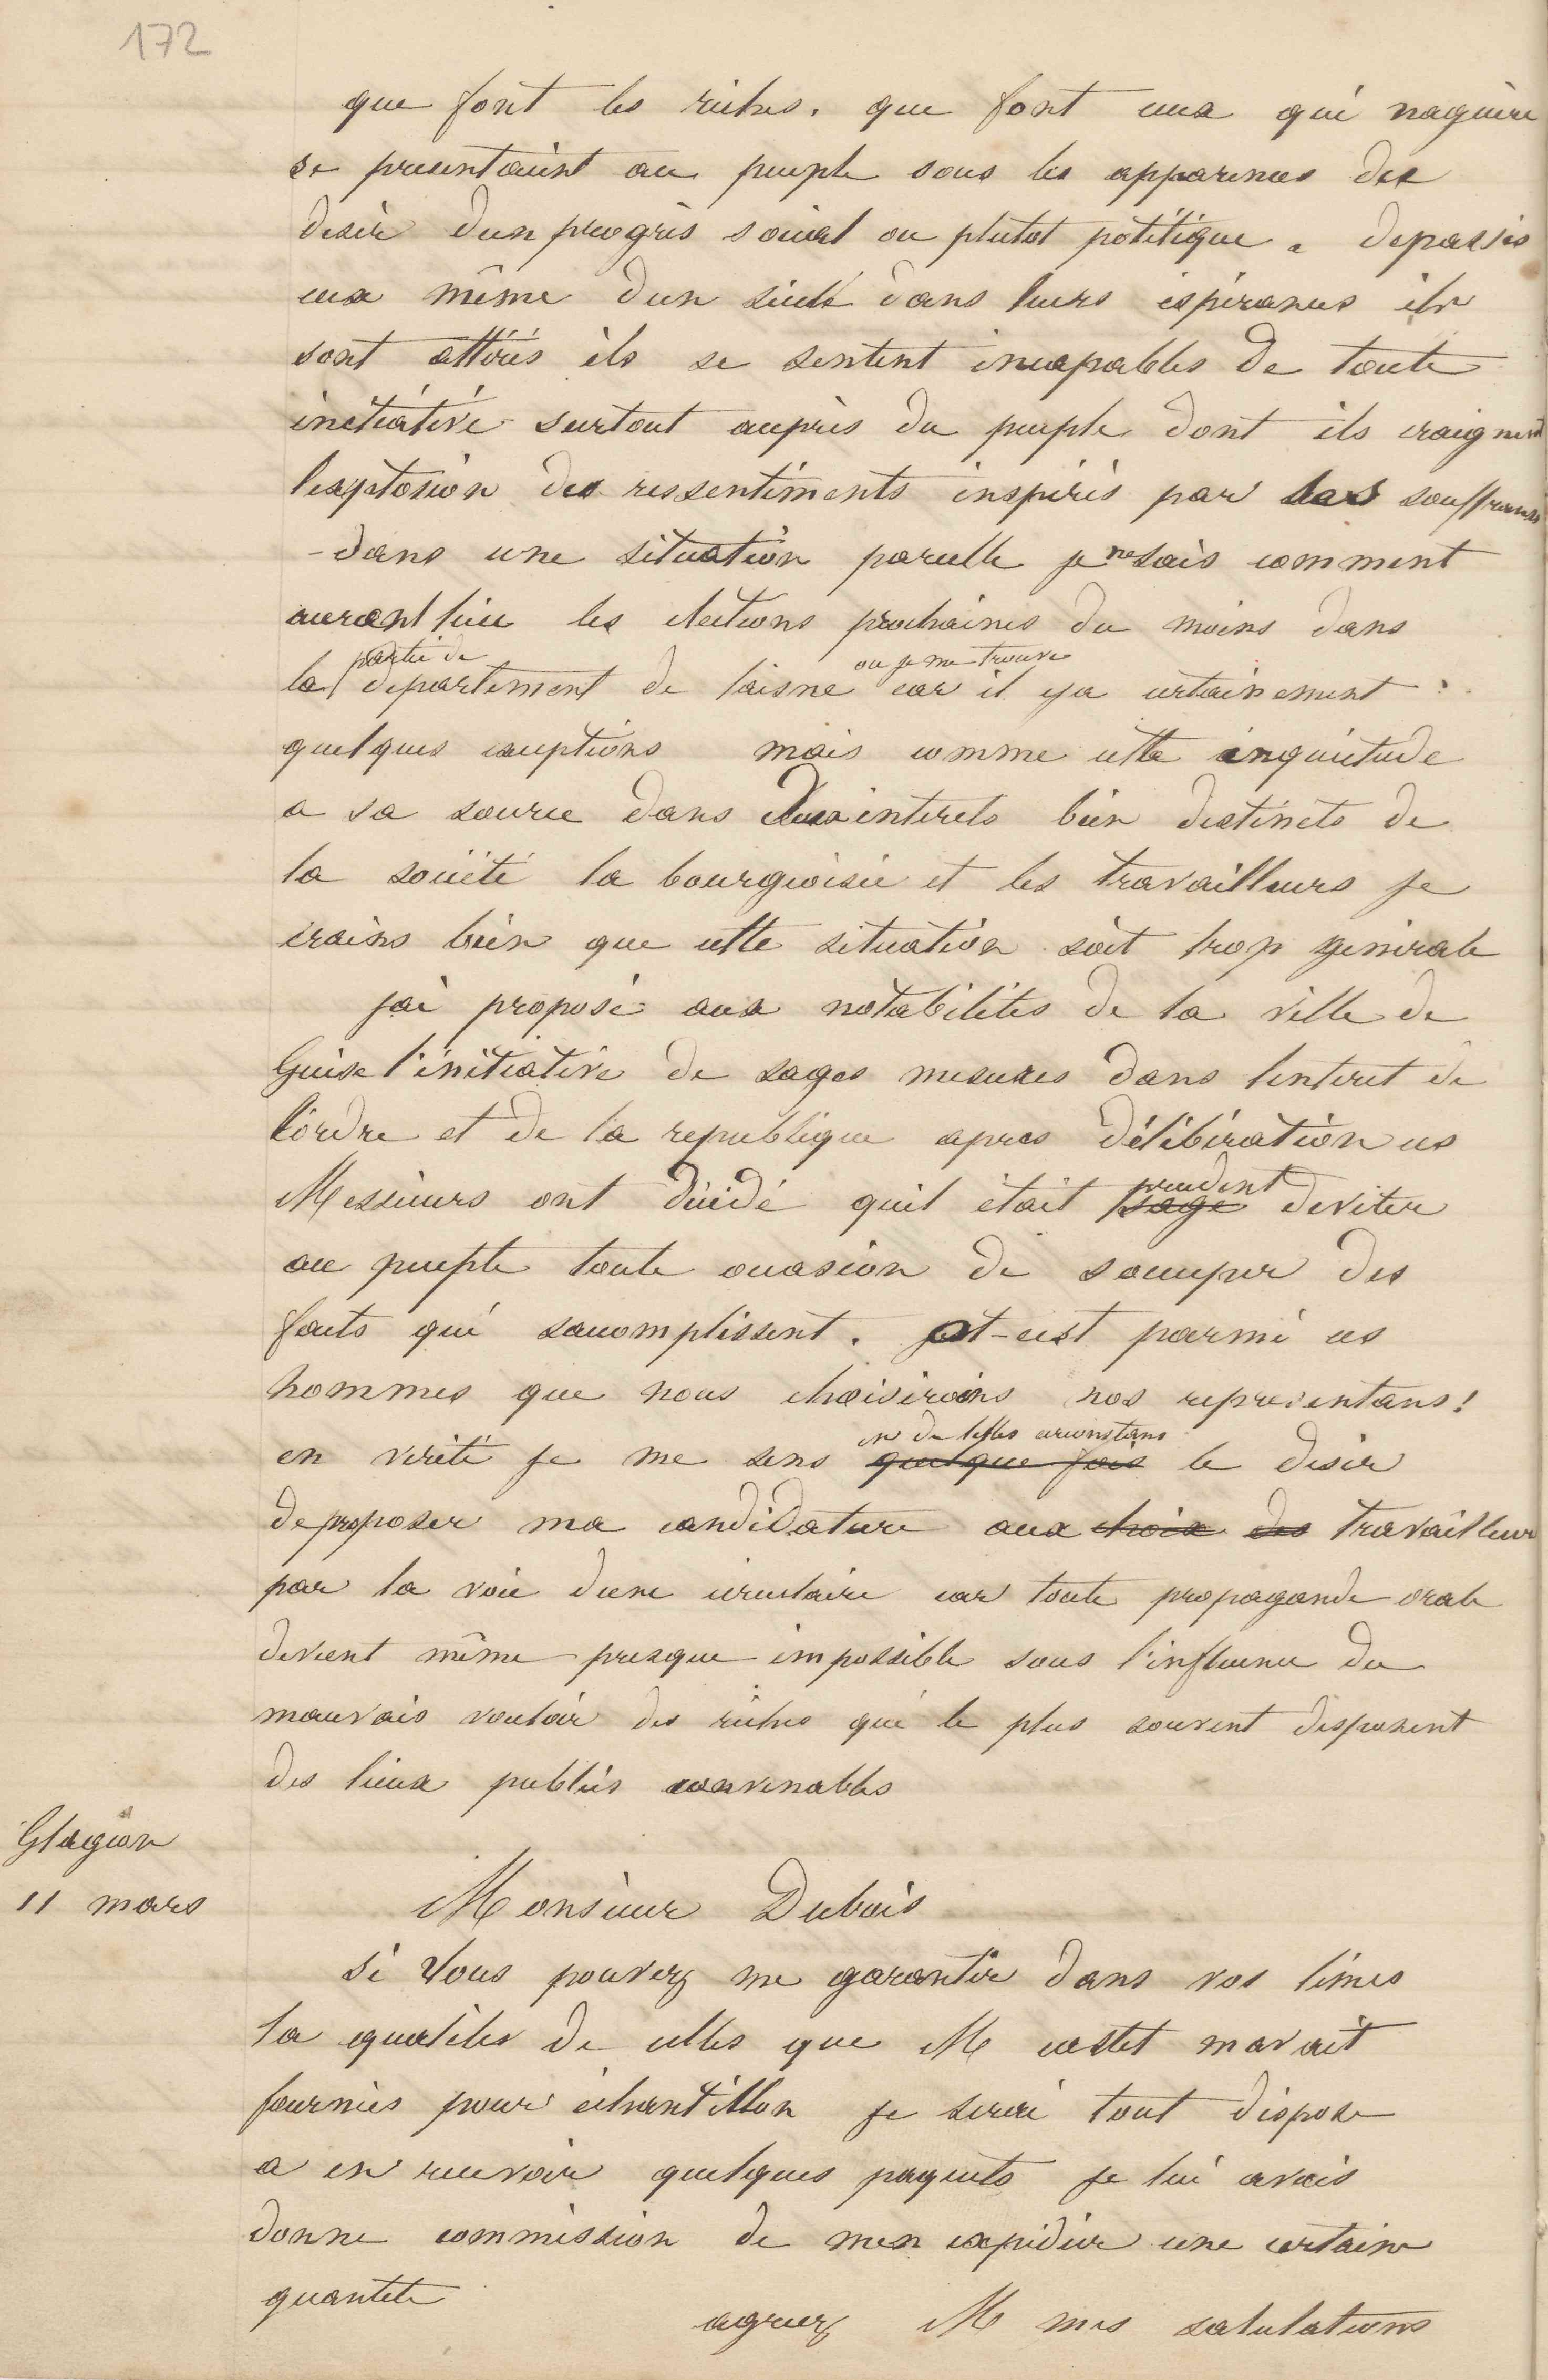 172
que font les riches. que font ceux qui naguère
se presentaient au peuple sous les apparences des
desir dun progrès social ou plutot politique. depassés
eux même dun siècle dans leurs espérances ils
sont attérés ils se sentent incapables de toute
initiative surtout auprès du peuple dont ils craignent
lexplosion des ressentiments inspirés par ses souffrances
-dans une situation pareille je ne sais comment
auront lieu les elections prochaines du moins dans
partie de ou je me trouve
la departement de laisne car il ya certainement
quelques exceptions mais comme cette inquietude
a sa source dans deux interets bien distincts de
la société la bourgeoisie et les travailleurs je
crains bien que cette situation soit trop generale
jai proposé aux notabilités de la ville de
Guise l'initiative de sages mesures dans linteret de
lordre et de la republique apres délibération ces
prudent
Messieurs ont décidé quil était sage deviter
au peuple toute occasion de soccuper des
faits qui saccomplissent. et cest parmi ces
hommes que nous choisirions nos representans!
en de telles circonstans
en vérité je me sens quelque fois le desir
de proposer ma candidature aux choix des travailleur
par la voie dune circulaire car toute propagande orale
devient même presque impossible sous l'influence du
mauvais vouloir des riches qui le plus souvent disposent
des lieux publics convenables
Glageon
11 mars
Monsieur Dubois
si vous pouvez me garantir dans vos limes
la qualités de celles que M castet mavait
fournies pour échantillon je serai tout dispose
a en recevoir quelques paquets je lui avais
donne commission de men expédier une certaine
quantite
agreez M mes salutations